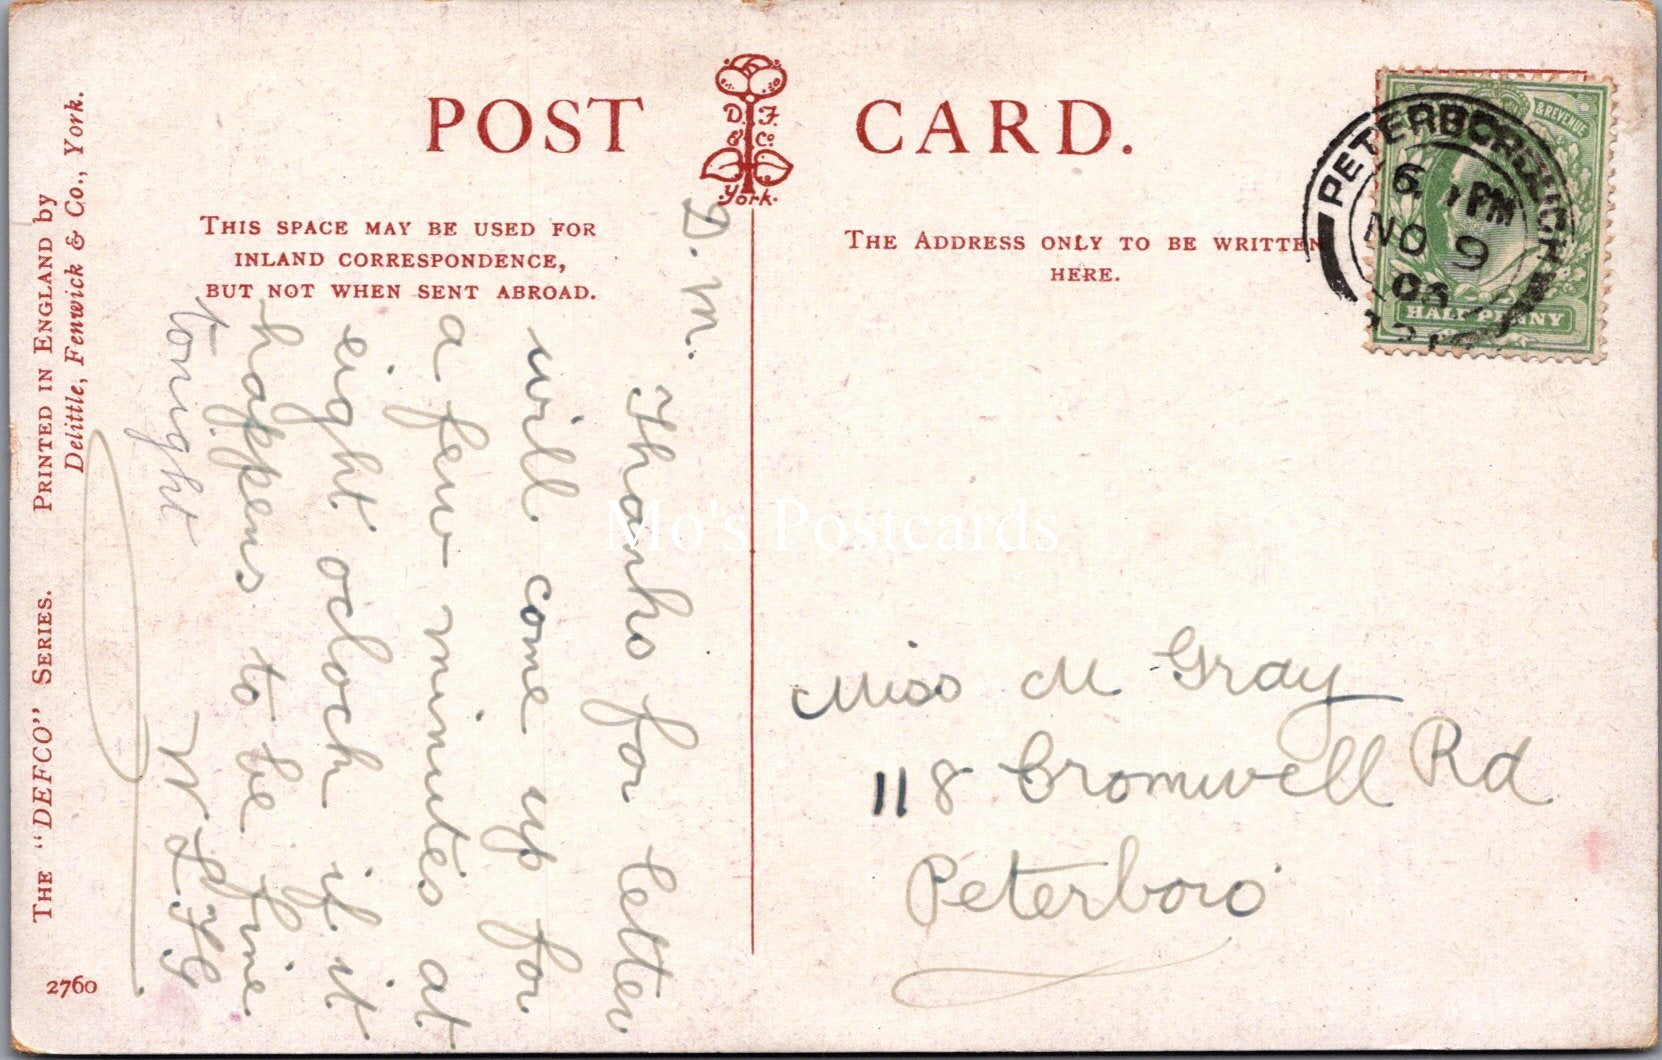 POST CARD.
D. F.
& Co.
York.
THIS SPACE MAY BE USED FOR
INLAND CORRESPONDENCE,
BUT NOT WHEN SENT ABROAD.
THE ADDRESS ONLY TO BE WRITTEN
HERE.
PETERBOROUGH
6 PM
NO 9
06
& REVENUE
HALF PENNY
D. M.
Thanks for letter
will come up for
a few minutes at
eight oclock if it
happens to be fine
tonight
Miss M Gray
118 Cromwell Rd
Peterboro'
THE "DEFCO" SERIES. PRINTED IN ENGLAND by
Delittle, Fenwick & Co., York.
2760
Mo's Postcards